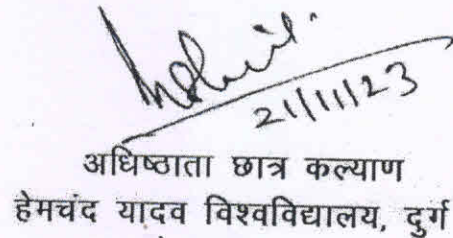 21/11/23
अधिष्ठाता छात्र कल्याण
हेमचंद यादव विश्वविद्यालय, दुर्ग